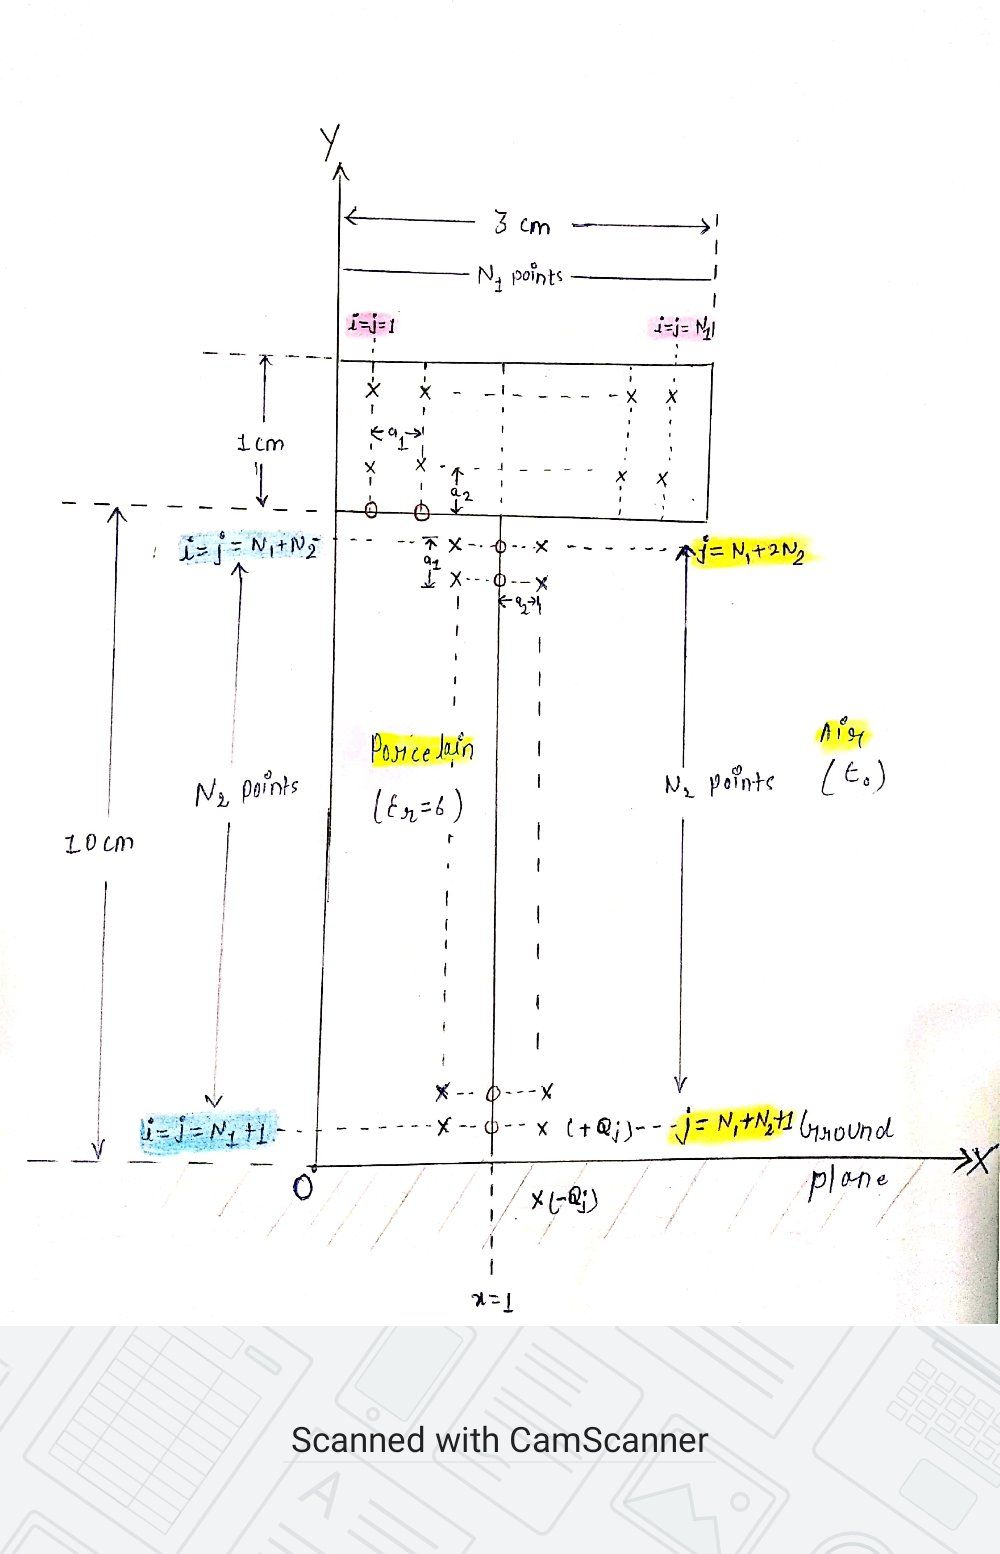 Y
3 cm
N1 points
i=j=1
i=j=N1
a1
1 cm
a2
i=j=N1+N2
j=N1+2N2
a1
a2
Porcelain
(εr=6)
Air
(ε0)
N2 points
N2 points
10 cm
i=j=N1+1
(+Qj)
j=N1+N2+1
Ground
plane
X
O
(-Qj)
x=1
Scanned with CamScanner